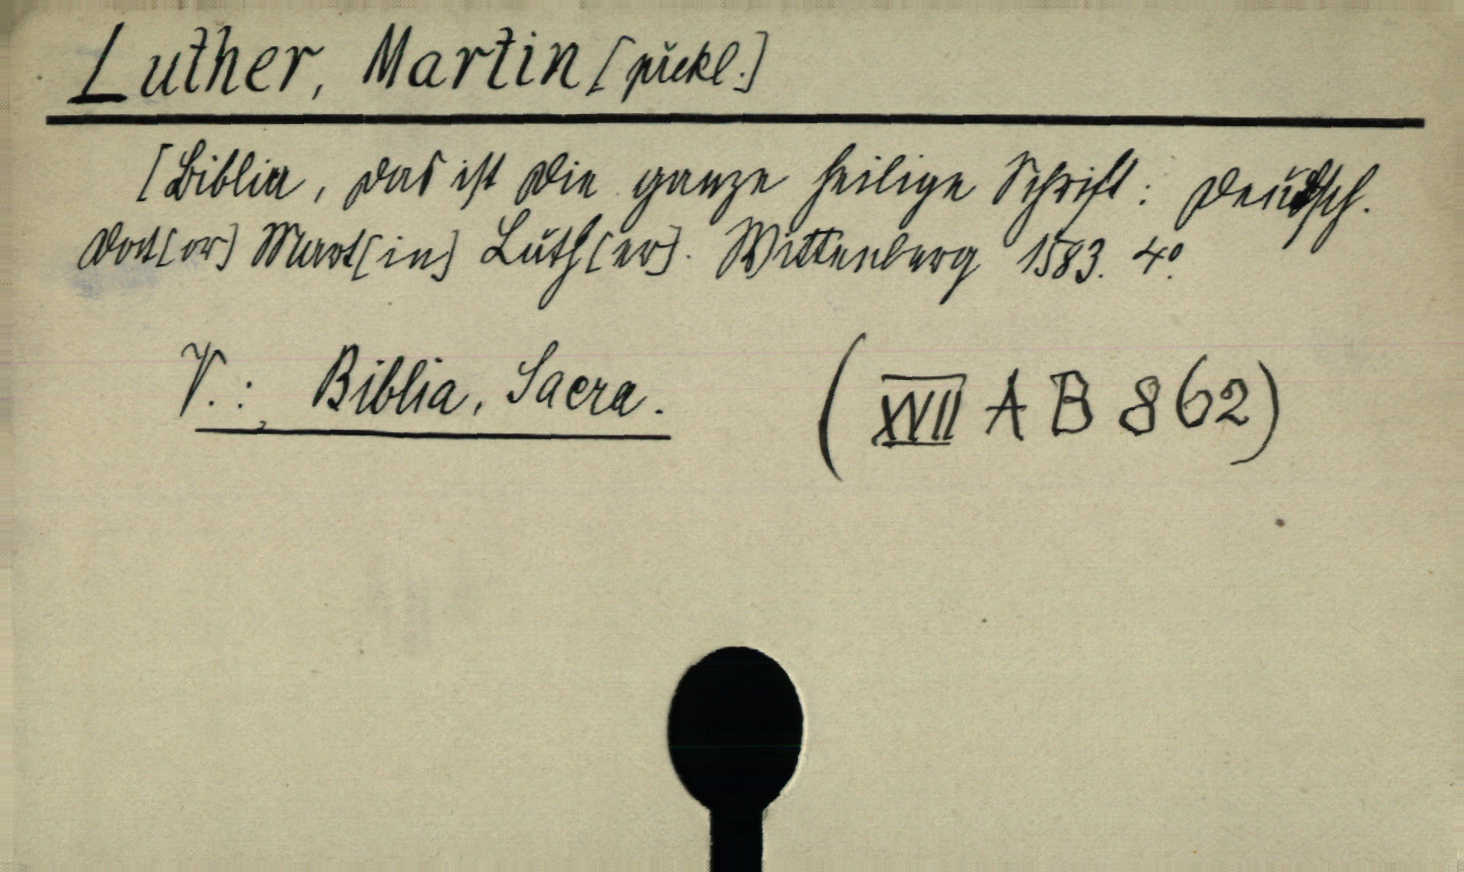 Luther, Martin [překl.]
[Biblia, das ist die ganze heilige Schrift: Deudsch.
Doct[or] Mart[in] Luth[er]. Wittenberg 1583. 4°.
V.: Biblia, Sacra. (XVII A B 862)